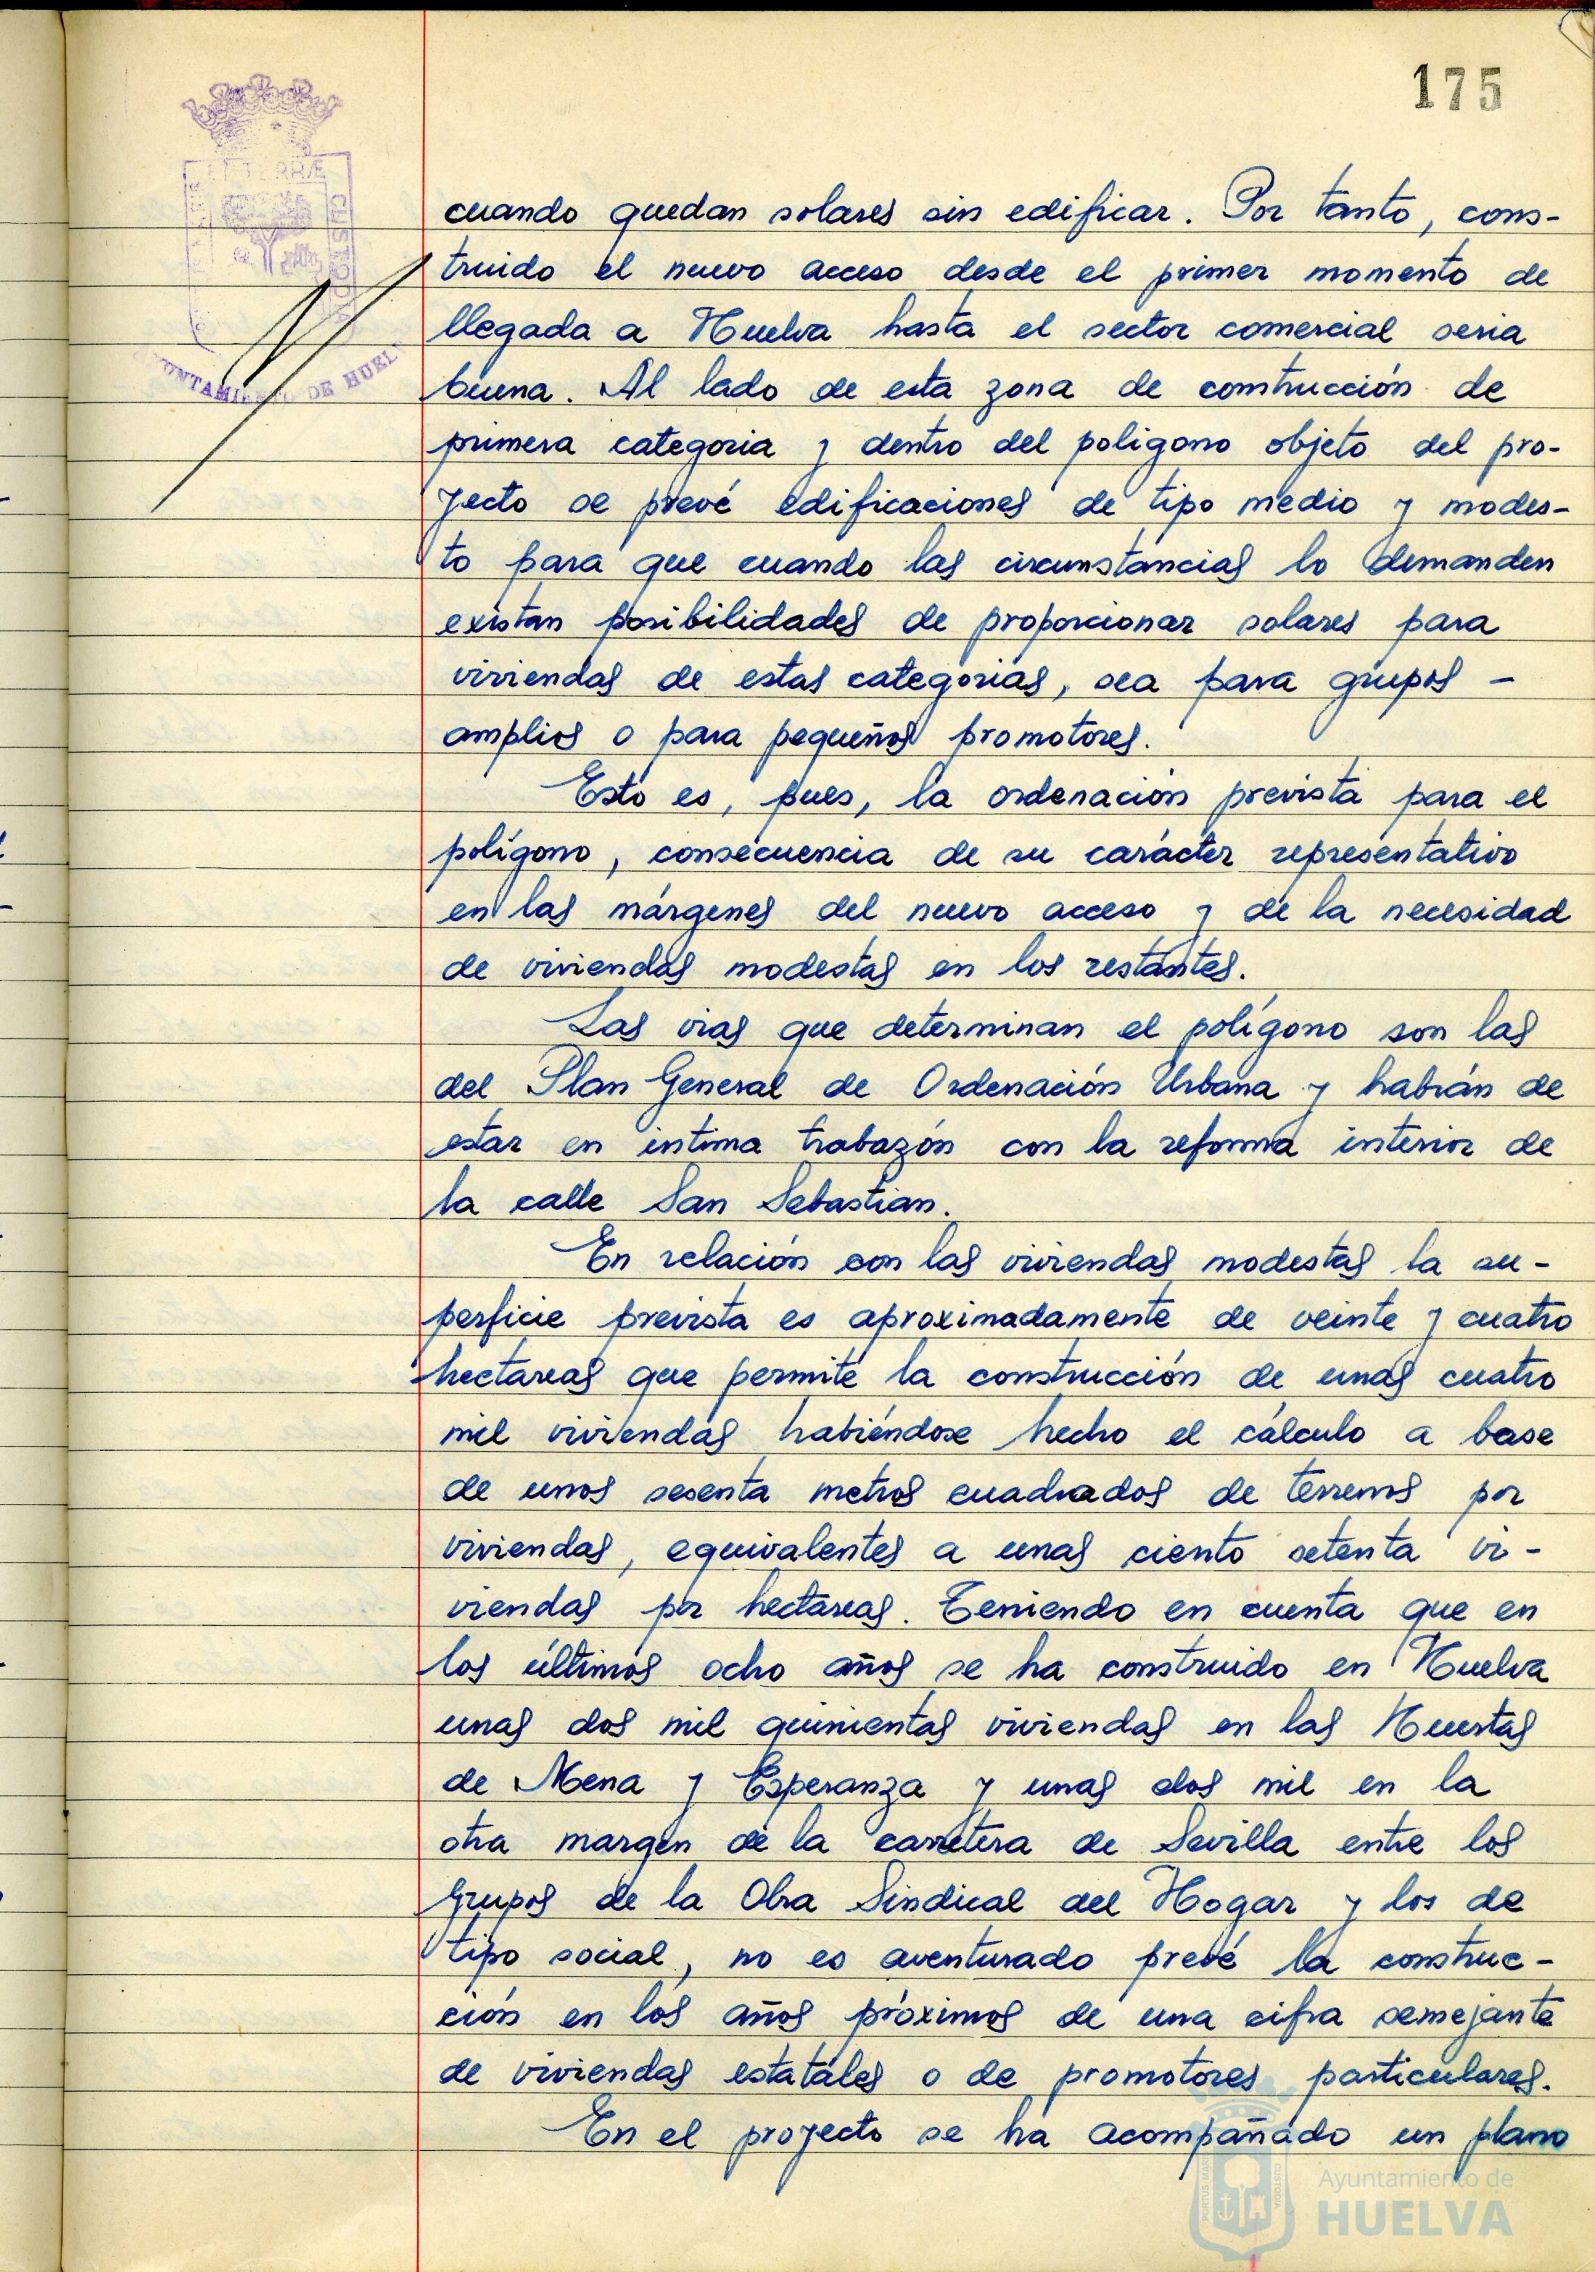 175
ET TERRÆ CUSTODIA
AYUNTAMIENTO DE HUELVA
cuando quedan solares sin edificar. Por tanto, cons-
truido el nuevo acceso desde el primer momento de
llegada a Huelva hasta el sector comercial seria
buena. Al lado de esta zona de construcción de
primera categoria y dentro del poligono objeto del pro-
yecto se prevé edificaciones de tipo medio y modes-
to para que cuando las circunstancias lo demanden
existan posibilidades de proporcionar solares para
viviendas de estas categorias, sea para grupos -
amplios o para pequeños promotores.
Esto es, pues, la ordenación prevista para el
polígono, consecuencia de su carácter representativo
en las márgenes del nuevo acceso y de la necesidad
de viviendas modestas en los restantes.
Las vias que determinan el polígono son las
del Plan General de Ordenación Urbana y habrán de
estar en intima trabazón con la reforma interior de
la calle San Sebastian.
En relación con las viviendas modestas la su-
perficie prevista es aproximadamente de veinte y cuatro
hectareas que permite la construcción de unas cuatro
mil viviendas habiéndose hecho el cálculo a base
de unos sesenta metros cuadrados de terrenos por
viviendas, equivalentes a unas ciento setenta vi-
viendas por hectareas. Teniendo en cuenta que en
los últimos ocho años se ha construido en Huelva
unas dos mil quinientas viviendas en las Huertas
de Mena y Esperanza y unas dos mil en la
otra margen de la carretera de Sevilla entre los
Grupos de la Obra Sindical del Hogar y los de
tipo social, no es aventurado prevé la construc-
ción en los años próximos de una cifra semejante
de viviendas estatales o de promotores particulares.
En el proyecto se ha acompañado un plano
Ayuntamiento de
HUELVA